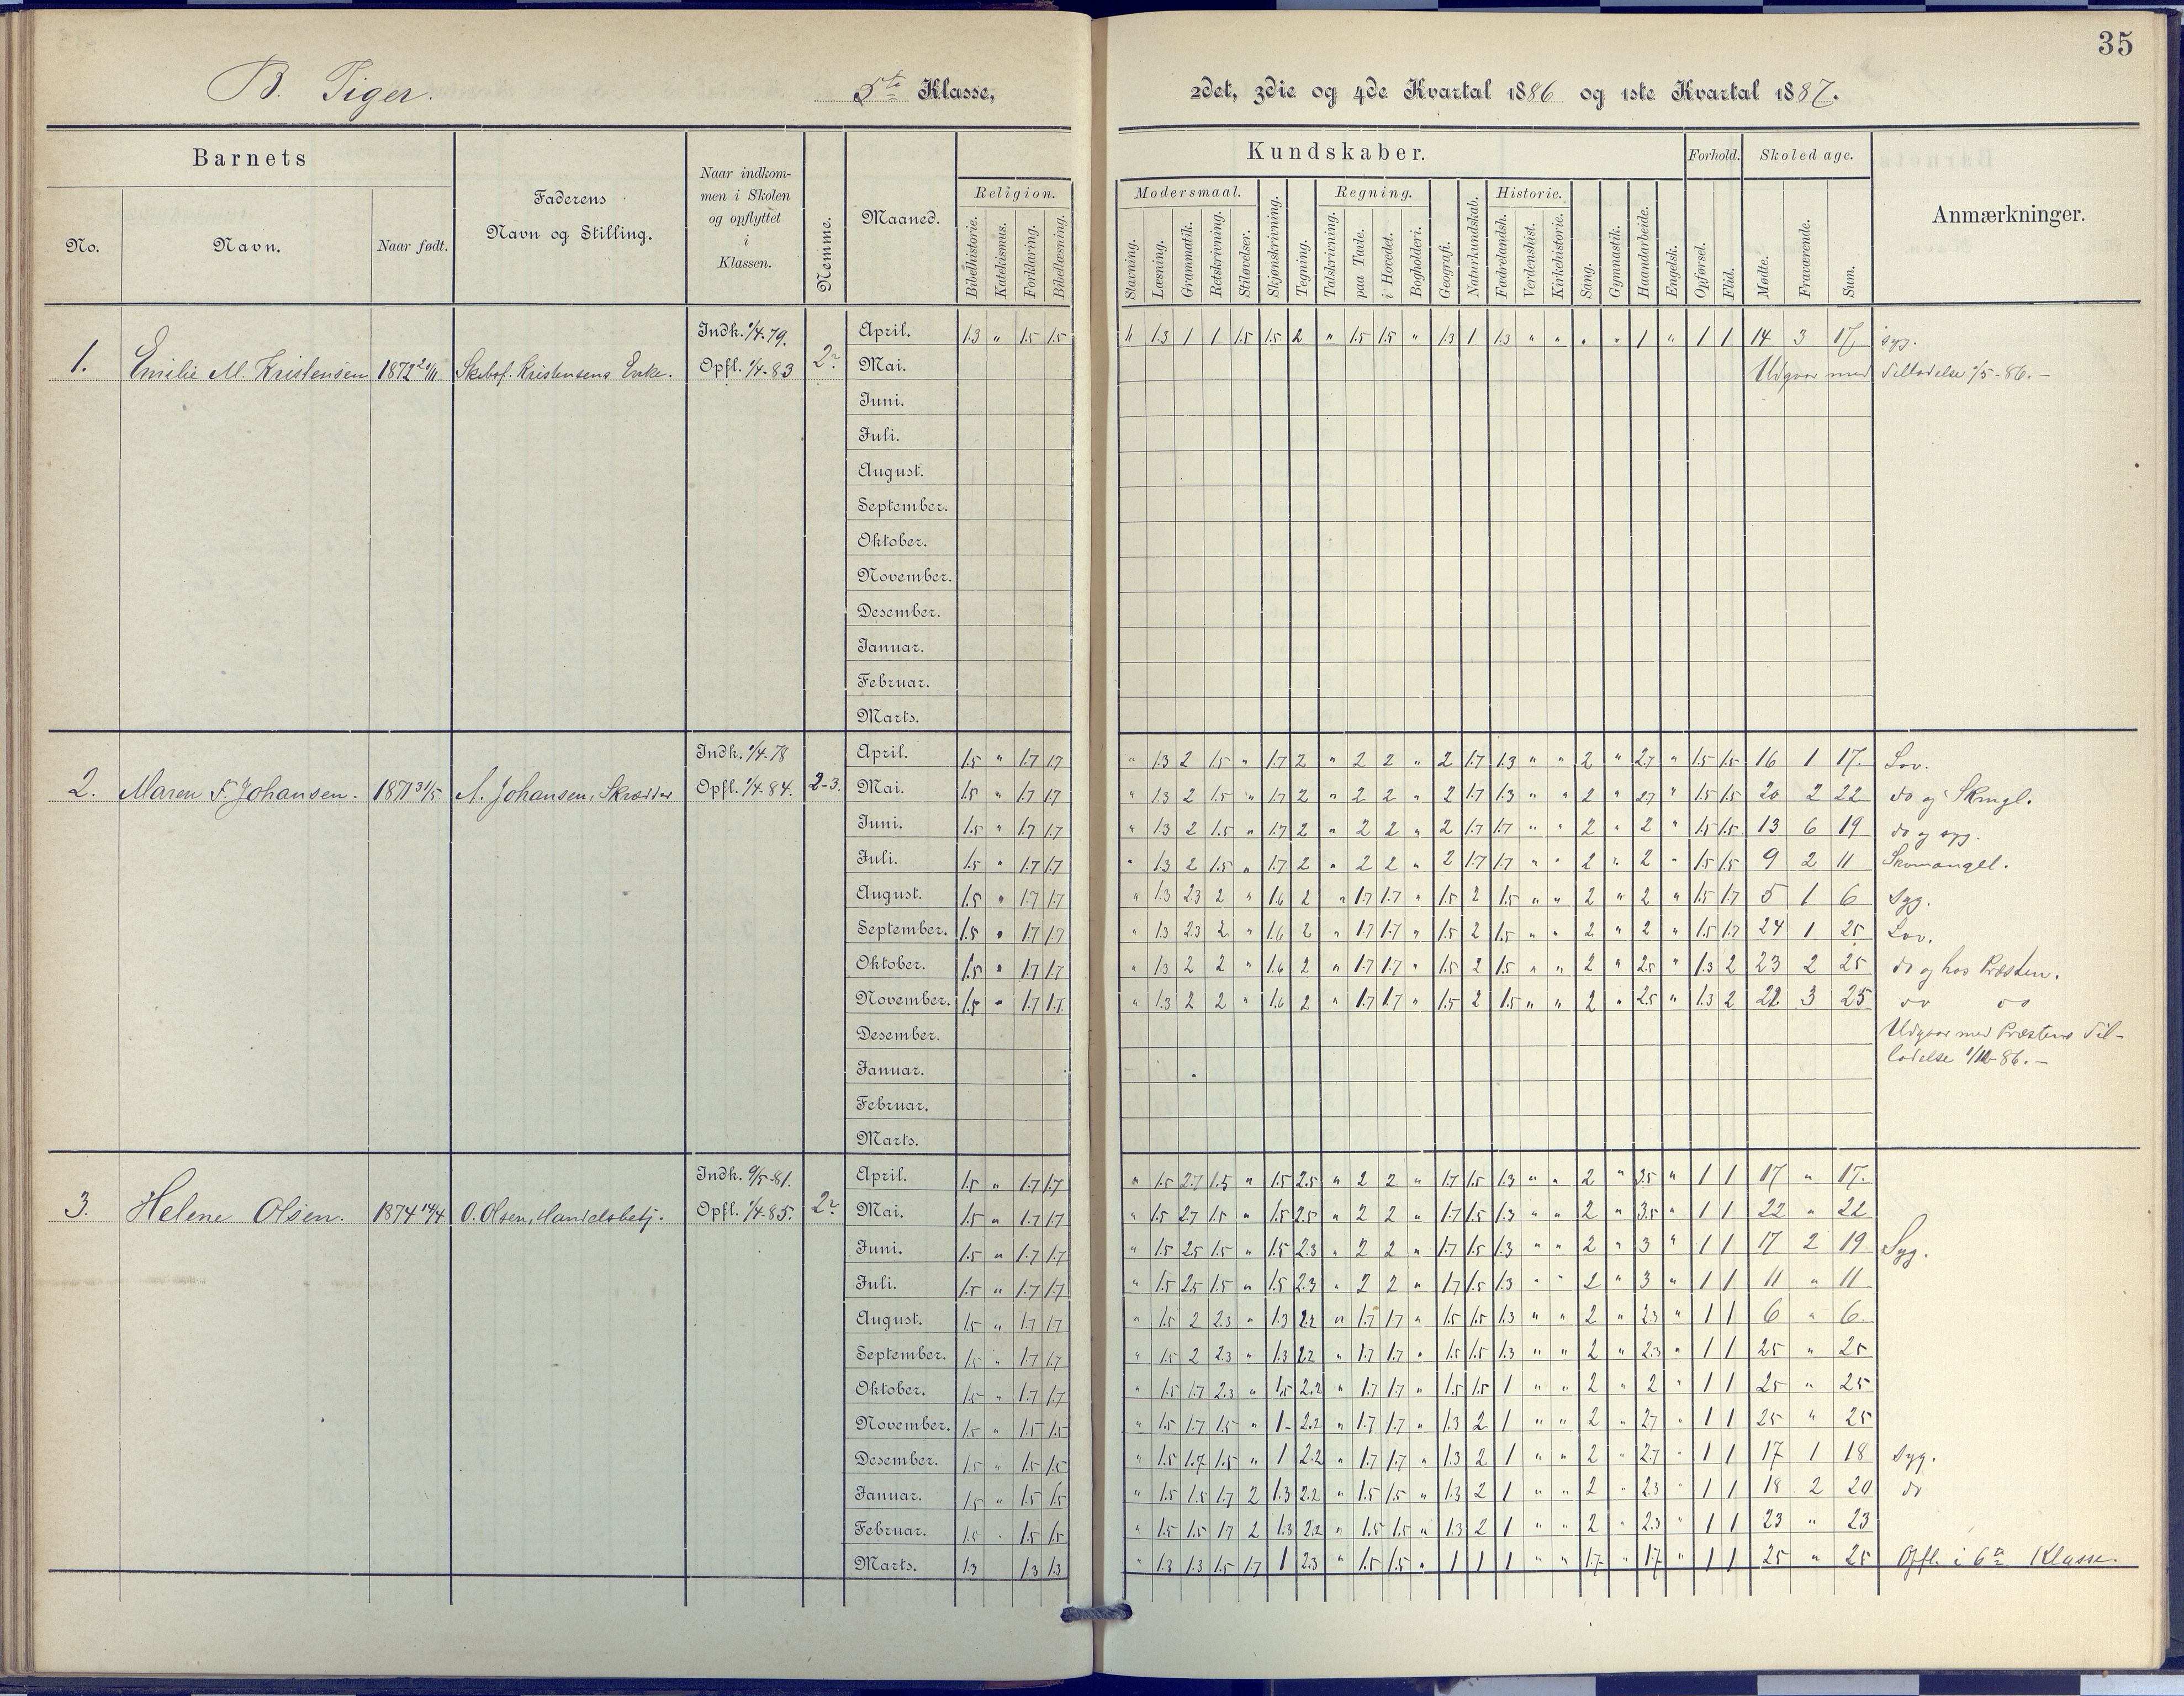 35
B. Piger. 5te Klasse, 2det, 3die og 4de Kvartal 1886 og 1ste Kvartal 1887.
Barnets
No.
Navn.
Naar født.
Faderens
Navn og Stilling.
Naar indkom-
men i Skolen
og opflyttet
i
Klassen.
Nemme.
Maaned.
Kundskaber.
Religion.
Bibelhistorie.
Katekismus.
Forklaring.
Bibellæsning.
Modersmaal.
Stavning.
Læsning.
Grammatik.
Retskrivning.
Stiløvelser.
Skjønskrivning.
Tegning.
Regning.
Talskrivning.
paa Tavle.
i Hovedet.
Bogholderi.
Geografi.
Naturkundskab.
Historie.
Fædrelandsh.
Verdenshist.
Kirkehistorie.
Sang.
Gymnastik.
Haandarbeide.
Engelsk.
Forhold.
Opførsel.
Flid.
Skoledage.
Mødte.
Fraværende.
Sum.
Anmærkninger.
1. Emilie M. Kristensen 1872 Kristensens Enke. Indk. 1/4-79. Opfl. 1/4-83 2
April. 1.3 " 1.5 1.5 " 1.3 1 1 1.5 1.5 2 " 1.5 1.5 " 1.3 1 1.3 " " " " 1 " 1 1 14 3 17 syg.
Mai. Udgaar med Tilladelse 1/5-86.-
Juni.
Juli.
August.
September.
Oktober.
November.
Desember.
Januar.
Februar.
Marts.
2. Maren F. Johansen. 1871 31/5 A. Johansen, Skrædder Indk. 1/4-78 Opfl. 1/4-84. 2-3.
April. 1.5 " 1.7 1.7 " 1.3 2 1.5 " 1.7 2 " 2 2 " 2 1.7 1.3 " " 2 " 2.7 " 1.5 1.5 16 1 17. Lov.
Mai. 1.5 " 1.7 1.7 " 1.3 2 1.5 " 1.7 2 " 2 2 " 2 1.7 1.3 " " 2 " 2.7 " 1.5 1.5 20 2 22 do og Skmgl.
Juni. 1.5 " 1.7 1.7 " 1.3 2 1.5 " 1.7 2 " 2 2 " 2 1.7 1.7 " " 2 " 2 " 1.5 1.5 13 6 19 do og syg.
Juli. 1.5 " 1.7 1.7 " 1.3 2 1.5 " 1.7 2 " 2 2 " 2 1.7 1.7 " " 2 " 2 " 1.5 1.5 9 2 11 Skomangel.
August. 1.5 " 1.7 1.7 " 1.3 2.3 2 " 1.6 2 " 1.7 1.7 " 1.5 2 1.5 " " 2 " 2 " 1.5 1.7 5 1 6 Syg.
September. 1.5 " 1.7 1.7 " 1.3 2.3 2 " 1.6 2 " 1.7 1.7 " 1.5 2 1.5 " " 2 " 2 " 1.5 1.7 24 1 25 Lov.
Oktober. 1.5 " 1.7 1.7 " 1.3 2 2 " 1.6 2 " 1.7 1.7 " 1.5 2 1.5 " " 2 " 2.5 " 1.3 2 23 2 25 do og hos Præsten.
November. 1.5 " 1.7 1.7 " 1.3 2 2 " 1.6 2 " 1.7 1.7 " 1.5 2 1.5 " " 2 " 2.5 " 1.3 2 22 3 25 do do
Desember. Udgaar med Præstens Til-
Januar. ladelse 1/12-86.-
Februar.
Marts.
3. Helene Olsen. 1874 14/4 O. Olsen, Handelsbetj. Indk. 9/5-81. Opfl. 1/4-85. 2
April. 1.5 " 1.7 1.7 " 1.5 2.7 1.5 " 1.5 2.5 " 2 2 " 1.7 1.5 1.3 " " 2 " 3.5 " 1 1 17 " 17.
Mai. 1.5 " 1.7 1.7 " 1.5 2.7 1.5 " 1.5 2.5 " 2 2 " 1.7 1.5 1.3 " " 2 " 3.5 " 1 1 22 " 22
Juni. 1.5 " 1.7 1.7 " 1.5 2.5 1.5 " 1.5 2.3 " 2 2 " 1.7 1.5 1.3 " " 2 " 3 " 1 1 17 2 19 Syg.
Juli. 1.5 " 1.7 1.7 " 1.5 2.5 1.5 " 1.5 2.3 " 2 2 " 1.7 1.5 1.3 " " 2 " 3 " 1 1 11 " 11
August. 1.5 " 1.7 1.7 " 1.5 2 2.3 " 1.3 2.2 " 1.7 1.7 " 1.5 1.5 1.3 " " 2 " 2.3 " 1 1 6 " 6.
September. 1.5 " 1.7 1.7 " 1.5 2 2.3 " 1.3 2.2 " 1.7 1.7 " 1.5 1.5 1.3 " " 2 " 2.3 " 1 1 25 " 25
Oktober. 1.5 " 1.7 1.7 " 1.5 1.7 2.3 " 1.5 2.2 " 1.7 1.7 " 1.5 1.5 1 " " 2 " 2 " 1 1 25 " 25
November. 1.5 " 1.5 1.5 " 1.5 1.7 1.5 " 1- 2.2 " 1.7 1.7 " 1.3 2 1 " " 2 " 2.7 " 1 1 25 " 25
Desember. 1.5 " 1.5 1.5 " 1.5 1.7 1.5 " 1 2.2 " 1.7 1.7 " 1.3 2 1 " " 2 " 2.7 " 1 1 17 1 18 syg.
Januar. 1.5 " 1.5 1.5 " 1.5 1.5 1.7 2 1.3 2.2 " 1.5 1.5 " 1.3 2 1 " " 2 " 2.3 " 1 1 18 2 20 do
Februar. 1.5 " 1.5 1.5 " 1.5 1.5 1.7 2 1.3 2.2 " 1.5 1.5 " 1.3 2 1 " " 2 " 2.3 " 1 1 23 " 23
Marts. 1.3 1.3 1.3 " 1.3 1.3 1.5 1.7 1 2.3 " 1.5 1.5 " 1 1 1 " " 1.7 " 1.7 " 1 1 25 " 25 Opfl. i 6te Klasse.